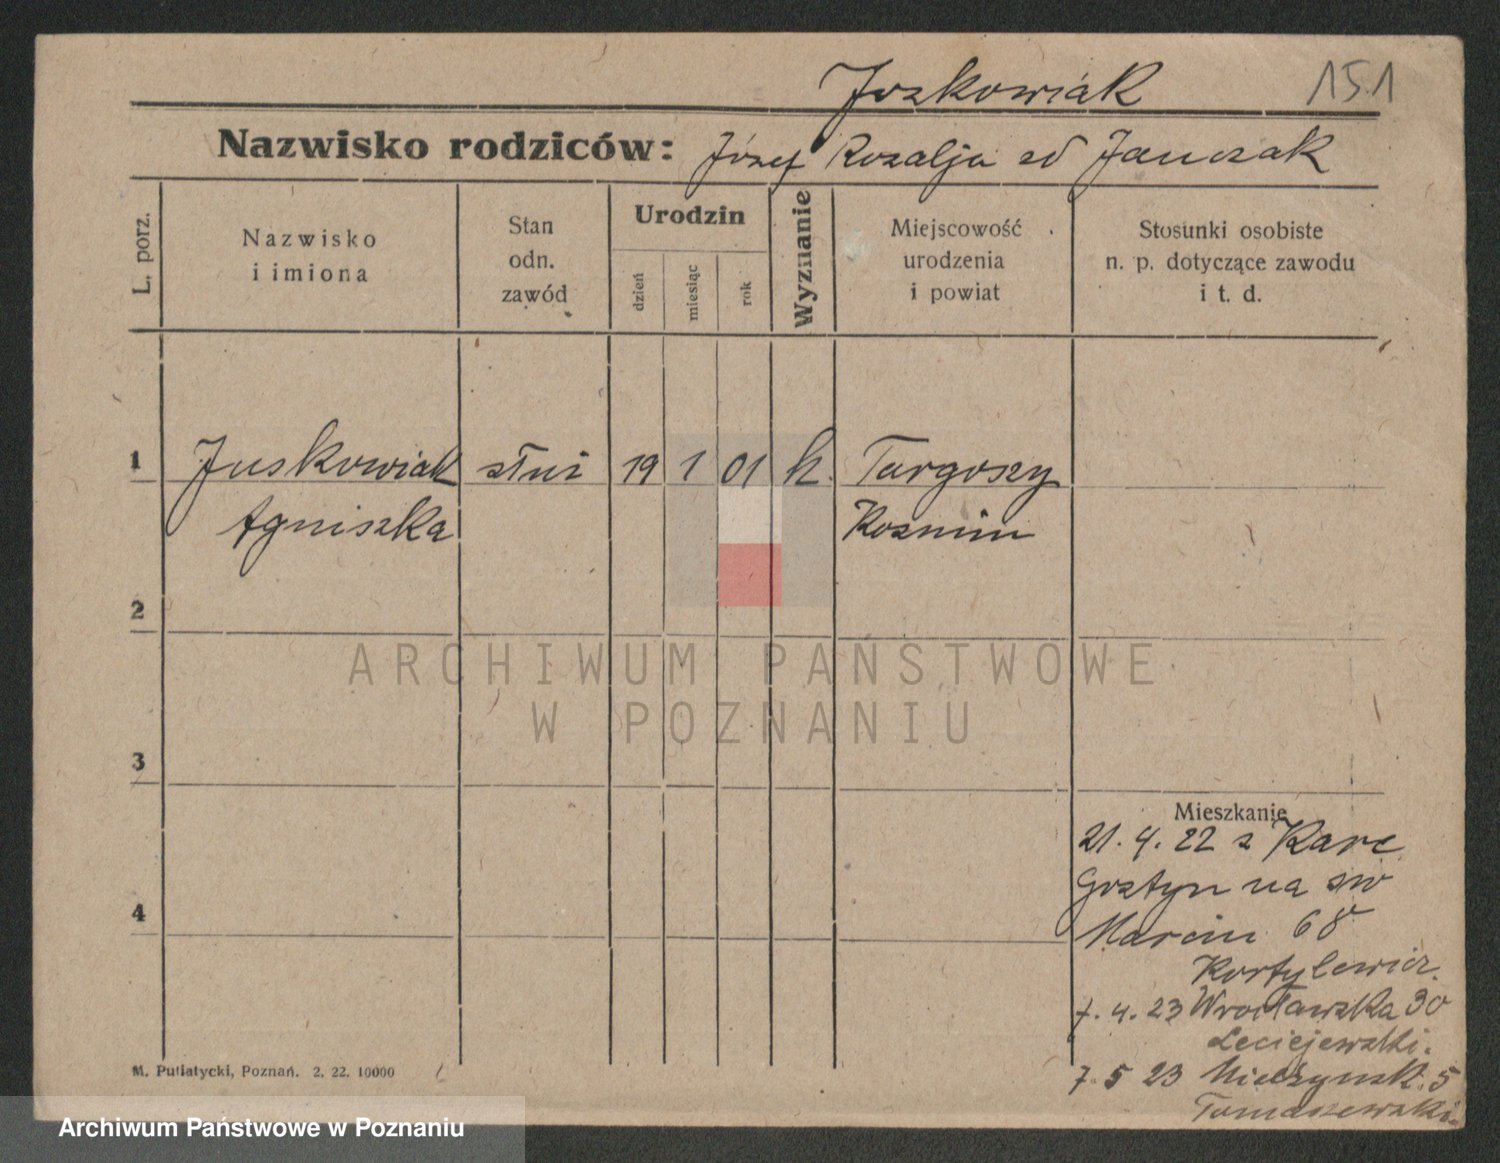 Juskowiak 151
Nazwisko rodziców: Józef Rozalja zd Janczak
L. porz.
Nazwisko
i imiona
Stan
odn.
zawód
Urodzin
dzień
miesiąc
rok
Wyznanie
Miejscowość
urodzenia
i powiat
Stosunki osobiste
n. p. dotyczące zawodu
i t. d.
1 Juskowiak służ 19 1 01 k. Targoszy
Agniszka Kozmin
2
ARCHIWUM PAŃSTWOWE
W POZNANIU
3
Mieszkanie
21. 4. 22 z Karc
Gostyn na św
4
Marcin 68
Kortylewicz.
7. 4. 23 Wrocławska 30
Leciejewski.
7. 5 23 Mielżynsk. 5
Tomaszewski.
M. Putiatycki, Poznań. 2. 22. 10000
Archiwum Państwowe w Poznaniu